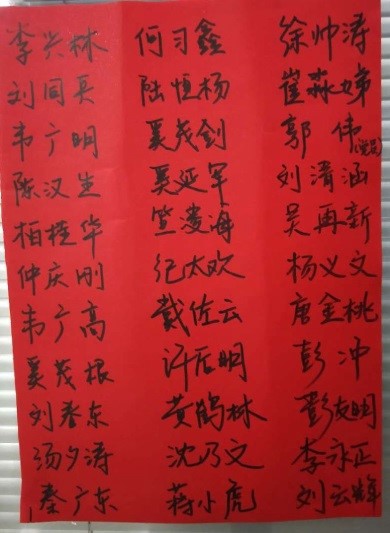 李兴林 何习鑫 徐帅涛
刘同兵 陆恒杨 崔淼娣
韦广明 奚茂剑 郭伟
陈汉生 奚延军 刘清涵
柏桂华 海 吴再新
仲庆刚 纪太欢 杨义文
韦广高 戴佐云 唐金桃
奚茂根 许后明 彭冲
刘春东 黄鹤林 彭友明
汤夕涛 沈乃文 李永正
秦广东 蒋小虎 刘云辉